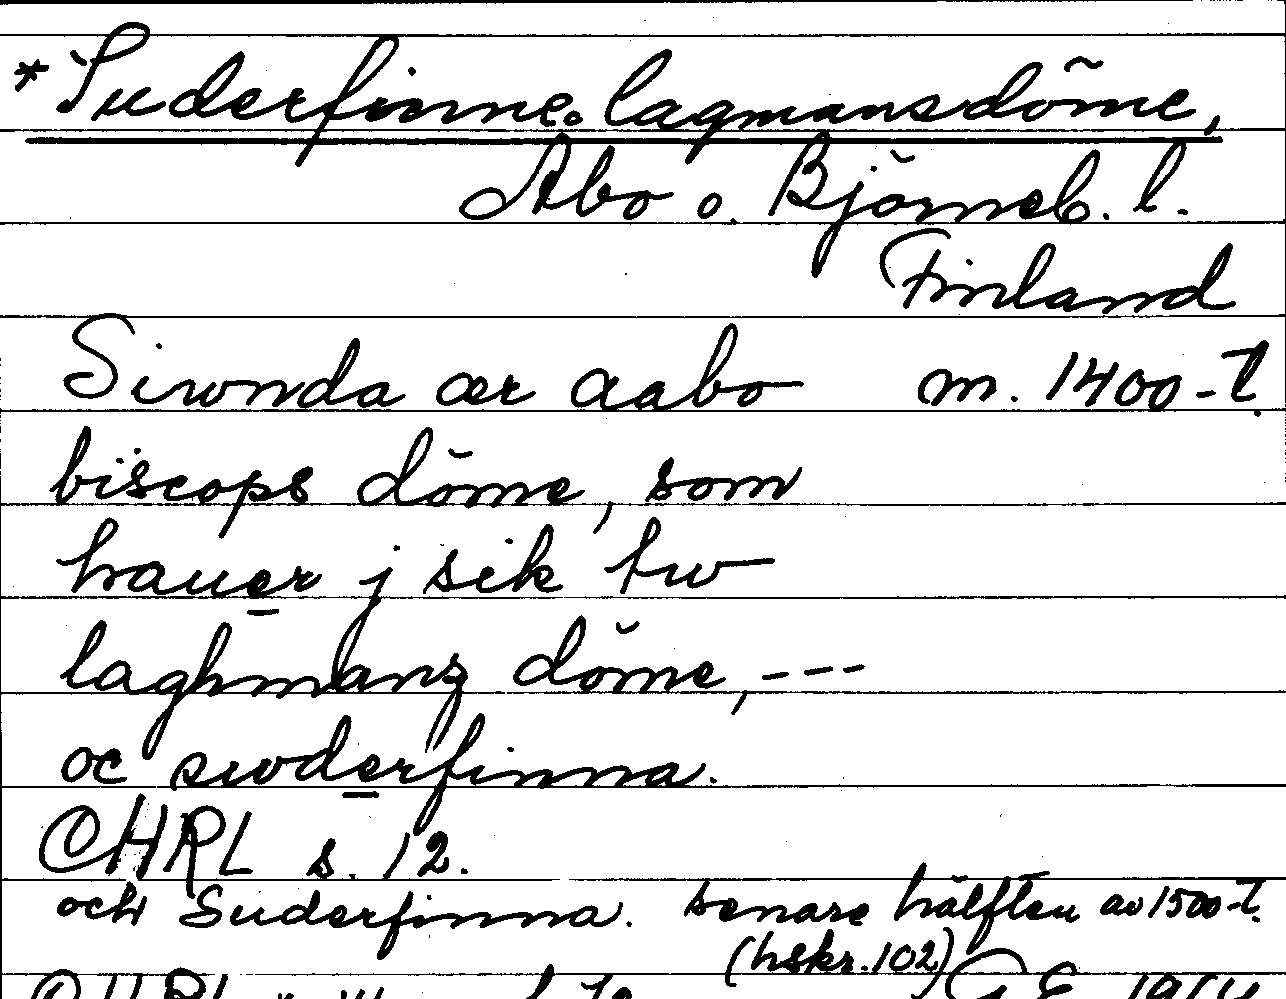 *Suderfinne. lagmansdöme,
Åbo o. Björneb. l.
Finland
Siwnda ær aabo m. 1400-t.
biscops döme, som
hauer j sik tw
laghmanz döme, ---
oc swderfinna.
CHRL s. 12.
och Suderfinna. senare hälften av 1500-t.
(hskr. 102)
CHRL